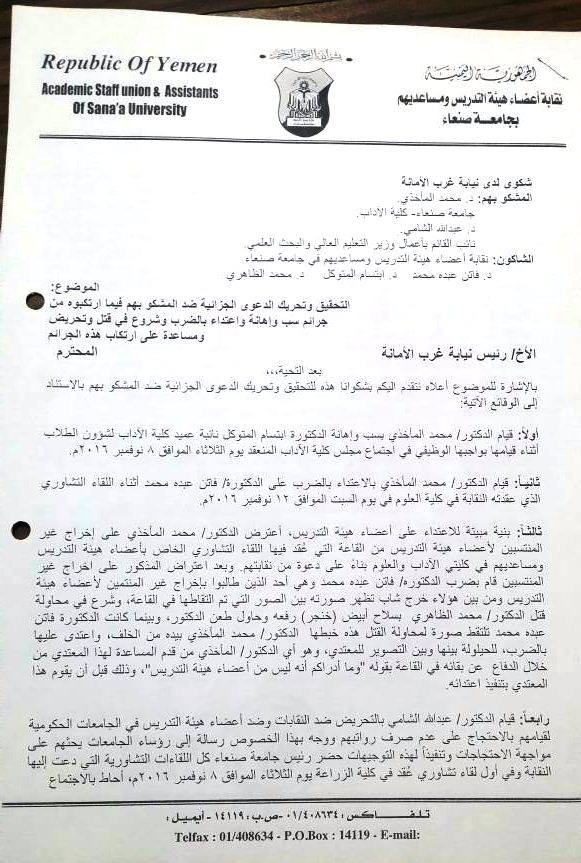 بسم الله الرحمن الرحيم
Republic Of Yemen
Academic Staff union & Assistants
Of Sana'a University
الجمهورية اليمنية
نقابة أعضاء هيئة التدريس ومساعديهم
بجامعة صنعاء
شكوى لدى نيابة غرب الأمانة
المشكو بهم: د. محمد المأخذي.
جامعة صنعاء- كلية الآداب.
د. عبدالله الشامي.
نائب القائم بأعمال وزير التعليم العالي والبحث العلمي
الشاكون: نقابة أعضاء هيئة التدريس ومساعديهم في جامعة صنعاء
د. فاتن عبده محمد د. ابتسام المتوكل د. محمد الظاهري
الموضوع:
التحقيق وتحريك الدعوى الجزائية ضد المشكو بهم فيما إرتكبوه من
جرائم سب وإهانة واعتداء بالضرب وشروع في قتل وتحريض
ومساعدة على ارتكاب هذه الجرائم
الأخ/ رئيس نيابة غرب الأمانة المحترم
بعد التحية,,,
بالإشارة للموضوع أعلاه نتقدم اليكم بشكوانا هذه للتحقيق وتحريك الدعوى الجزائية ضد المشكو بهم بالاستناد
إلى الوقائع الآتية:
أولاً: قيام الدكتور/ محمد المأخذي بسب وإهانة الدكتورة ابتسام المتوكل نائبة عميد كلية الآداب لشؤون الطلاب
أثناء قيامها بواجبها الوظيفي في اجتماع مجلس كلية الآداب المنعقد يوم الثلاثاء الموافق ٨ نوفمبر ٢٠١٦م.
ثانياً: قيام الدكتور/ محمد المأخذي بالاعتداء بالضرب على الدكتورة/ فاتن عبده محمد أثناء اللقاء التشاوري
الذي عقدته النقابة في كلية العلوم في يوم السبت الموافق ١٢ نوفمبر ٢٠١٦م.
ثالثاً: بنية مبيتة للاعتداء على أعضاء هيئة التدريس، أعترض الدكتور/ محمد المأخذي على إخراج غير
المنتسبين لأعضاء هيئة التدريس من القاعة التي عُقد فيها اللقاء التشاوري الخاص بأعضاء هيئة التدريس
ومساعديهم في كليتي الآداب والعلوم بناءً على دعوة من نقابتهم. وبعد اعتراض المذكور على اخراج غير
المنتسبين قام بضرب الدكتورة/ فاتن عبده محمد وهي أحد الذين طالبوا بإخراج غير المنتمين لأعضاء هيئة
التدريس ومن بين هولاء خرج شاب تظهر صورته بين الصور التي تم التقاطها في القاعة، وشرع في محاولة
قتل الدكتور/ محمد الظاهري بسلاح أبيض (خنجر) رفعه وحاول طعن الدكتور، وبينما كانت الدكتورة فاتن
عبده محمد تلتقط صورة لمحاولة القتل هذه خبطها الدكتور/ محمد المأخذي بيده من الخلف، واعتدى عليها
بالضرب، للحيلولة بينها وبين التصوير للمعتدي، وهو أي الدكتور/ المأخذي من قدم المساعدة لهذا المعتدي من
خلال الدفاع عن بقائه في القاعة بقوله "وما أدراكم أنه ليس من أعضاء هيئة التدريس"، وذلك قبل أن يقوم هذا
المعتدي بتنفيذ اعتدائه.
رابعاً: قيام الدكتور/ عبدالله الشامي بالتحريض ضد النقابات وضد أعضاء هيئة التدريس في الجامعات الحكومية
لقيامهم بالاحتجاج على عدم صرف رواتبهم ووجه بهذا الخصوص رسالة إلى رؤساء الجامعات يحثهم على
مواجهة الاحتجاجات وتنفيذاً لهذه التوجيهات حضر رئيس جامعة صنعاء كل اللقاءات التشاورية التي دعت إليها
النقابة وفي أول لقاء تشاوري عُقد في كلية الزراعة يوم الثلاثاء الموافق ٨ نوفمبر ٢٠١٦م، أحاط بالاجتماع
تلفاكس: ٠١/٤٠٨٦٣٤ -ص.ب: ١٤١١٩- أيميل:
Telfax : 01/408634 - P.O.Box : 14119 - E-mail: